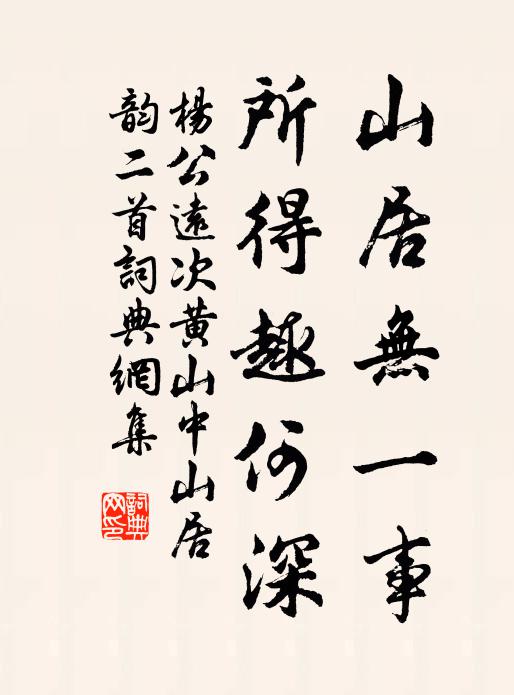 山居無一事
所得趣何深
楊公遠次黄山中山居
韵二首詞典網集
詞典網印